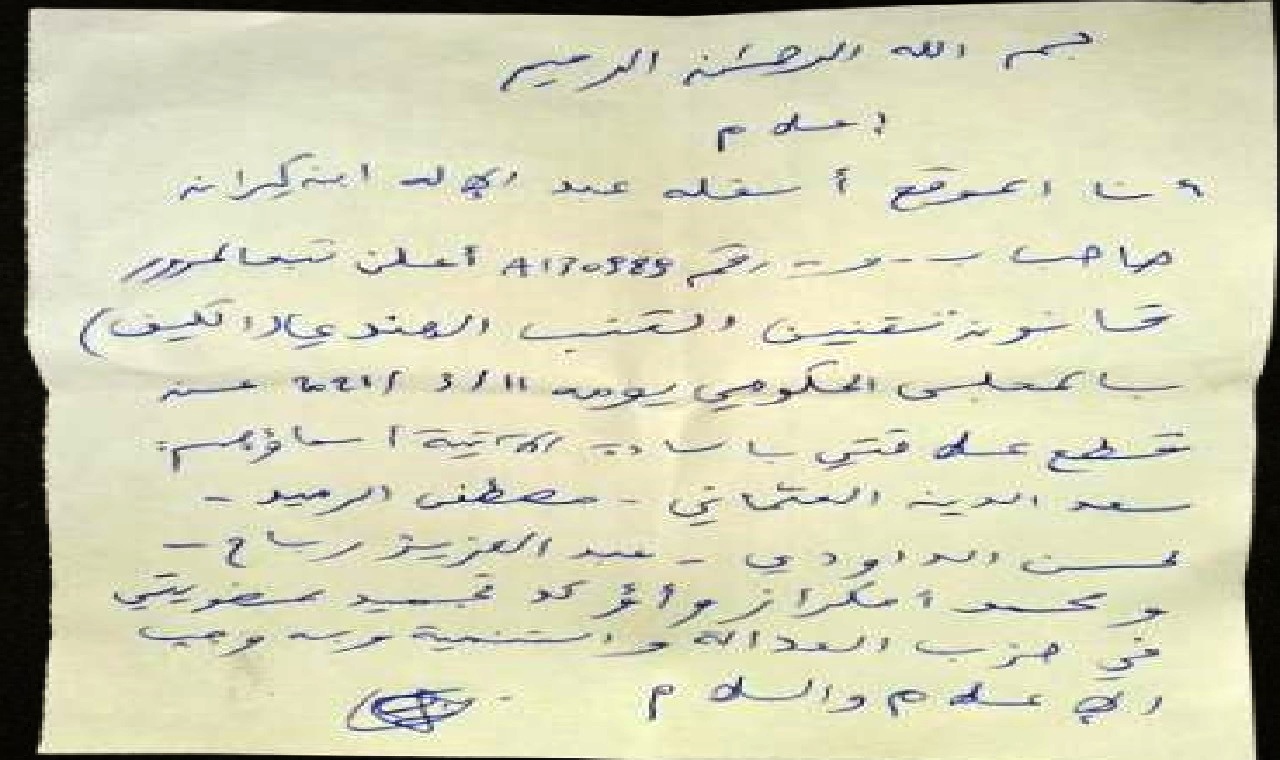 بسم الله الرحمن الرحيم
إعلام
أنا الموقع أسفله عبد الإله ابن كيران
صاحب ب.و.ت رقم A170989 أعلن تبعا لمرور
قانون تقنين القنب الهندي (الكيف)
بالمجلس الحكومي يومه 11/3/2021 عن
قطع علاقتي بالسادة الآتية أسماؤهم:
سعد الدين العثماني - مصطفى الرميد -
لحسن الداودي - عبد العزيز رباح -
ومحمد أمكراز وأؤكد تجميد عضويتي
في حزب العدالة والتنمية ومنه وجب
الإعلام والسلام